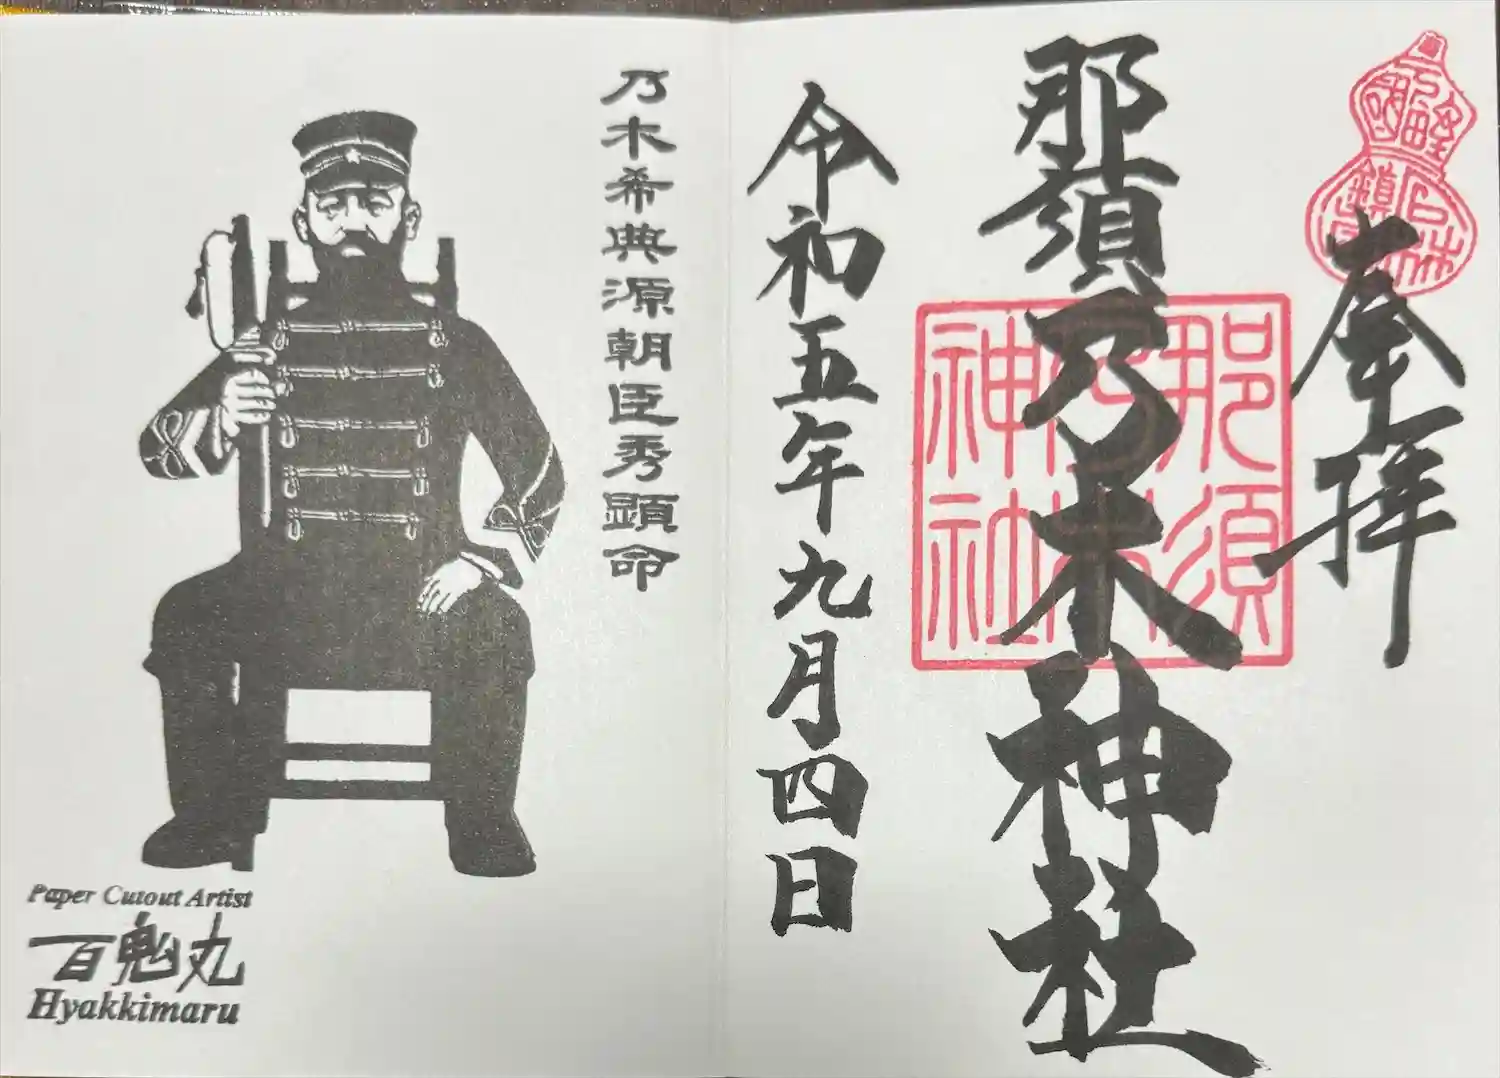 奉拝
那須乃木神社
那須乃木神社
令和五年九月四日
乃木希典源朝臣秀顕命
Paper Cutout Artist
百鬼丸
Hyakkimaru